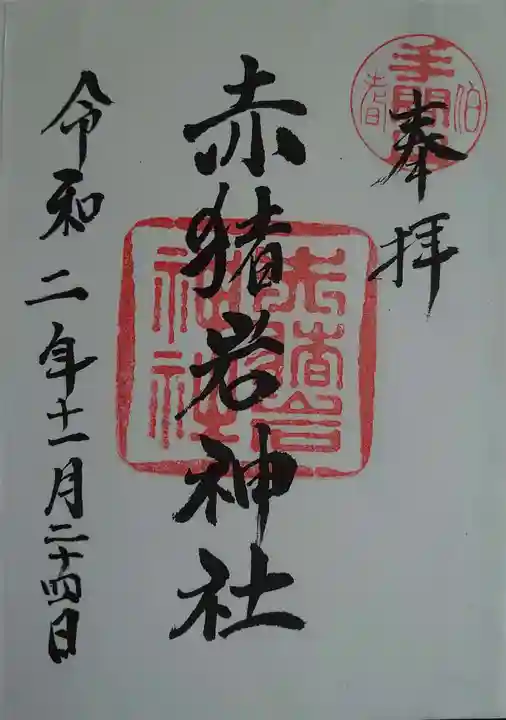 奉拝
赤猪岩神社
令和二年十一月二十四日
赤猪岩
神社